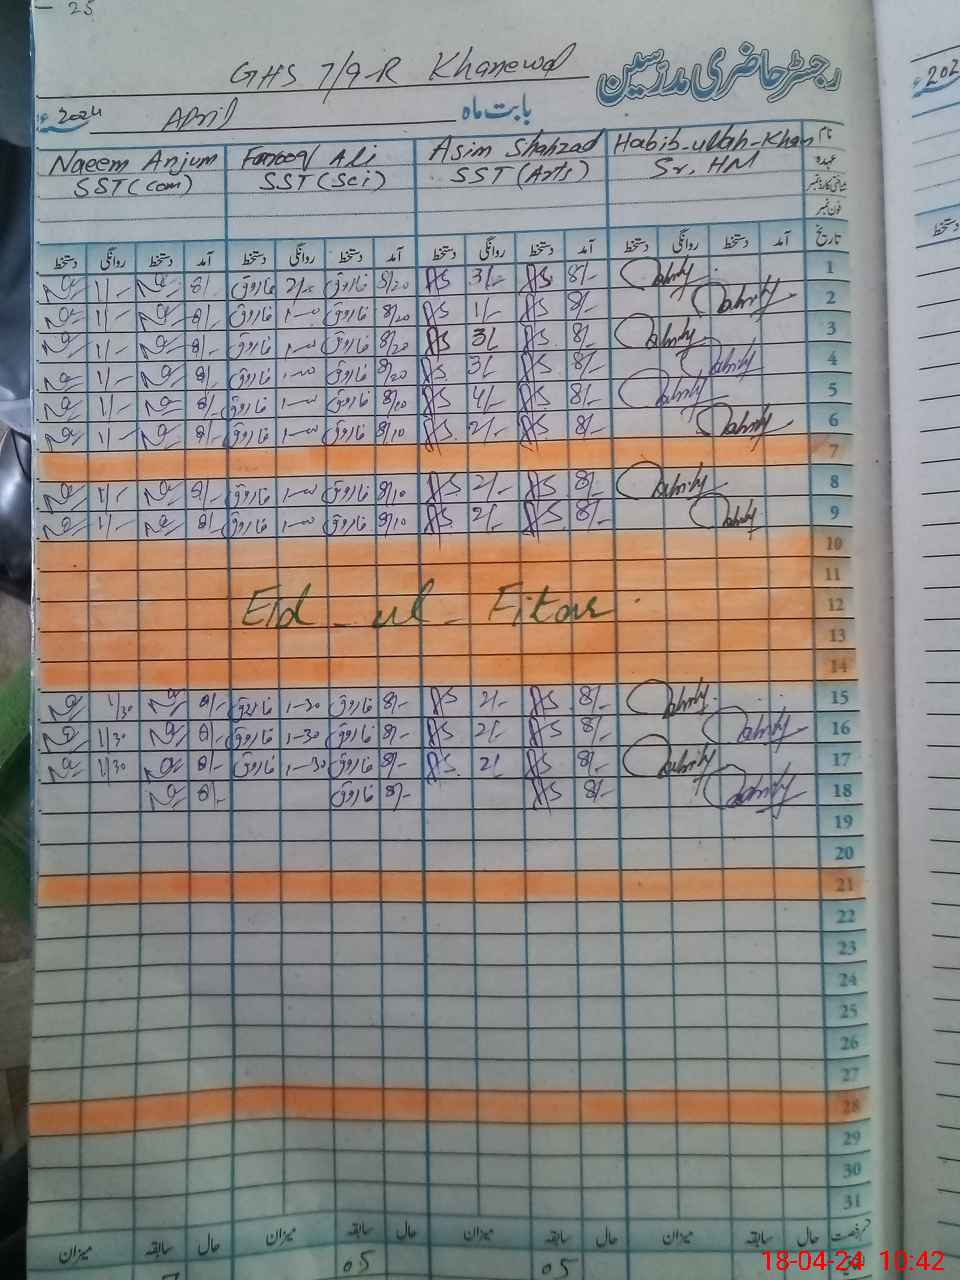 - 25
GHS 7/9-R Khanewal رجسٹر حاضری مدرسین
2024ء April بابت ماہ
Naeem Anjum Farooq Ali Asim Shahzad Habib-ullah-Khan نام
SST(com) SST(Sci) SST(Arts) Sr. HM عہدہ
شناختی کارڈ نمبر
فون نمبر
دستخط روانگی دستخط آمد دستخط روانگی دستخط آمد دستخط روانگی دستخط آمد دستخط روانگی دستخط آمد تاریخ
1/- 8/- فاروق فاروق 8/20 AS 3/- AS 8/- 1
1/- 8/- فاروق 1-00 فاروق 8/20 AS 1/- AS 8/- 2
1/- 8/- فاروق 1-00 فاروق 8/20 AS 3/- AS 8/- 3
1/- 8/- فاروق 1-00 فاروق 8/20 AS 3/- AS 8/- 4
1/- 8/- فاروق 1-00 فاروق 8/10 AS 4/- AS 8/- 5
1/- 8/- فاروق 1-00 فاروق 8/10 AS 2/- AS 8/- 6
7
1/- 8/- فاروق 1-00 فاروق 8/10 AS 2/- AS 8/- 8
1/- 8/- فاروق 1-00 فاروق 8/10 AS 2/- AS 8/- 9
10
11
Eid - ul - Fitar 12
13
14
1/30 8/- فاروق 1-30 فاروق 8/- AS 2/- AS 8/- 15
1/30 8/- فاروق 1-30 فاروق 8/- AS 2/- AS 8/- 16
1/30 8/- فاروق 1-30 فاروق 8/- AS 2/- AS 8/- 17
8/- فاروق 8/- AS 8/- 18
19
20
21
22
23
24
25
26
27
28
29
30
31
میزان سابقہ حال میزان سابقہ حال میزان سابقہ حال میزان سابقہ حال قسم رخصت
05 05
18-04-24 10:42
202
دستخط